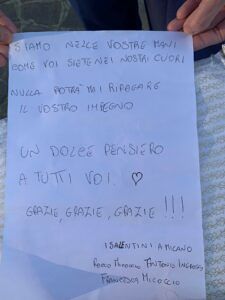 SIAMO NELLE VOSTRE MANI
COME VOI SIETE NEI NOSTRI CUORI
NULLA POTRÀ MAI RIPAGARE
IL VOSTRO IMPEGNO
UN DOLCE PENSIERO
A TUTTI VOI. ♡
GRAZIE, GRAZIE, GRAZIE !!!
I SALENTINI A MILANO
ANTONIO
FRANCESCA MICOCCIO